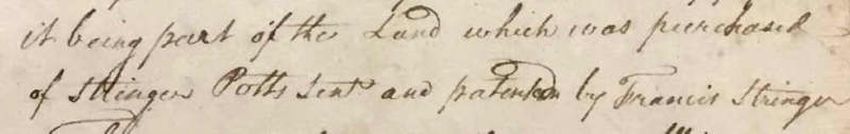 it being part of the Land which was purchased
of Stringer Potts Senr and patented by Francis Stringer